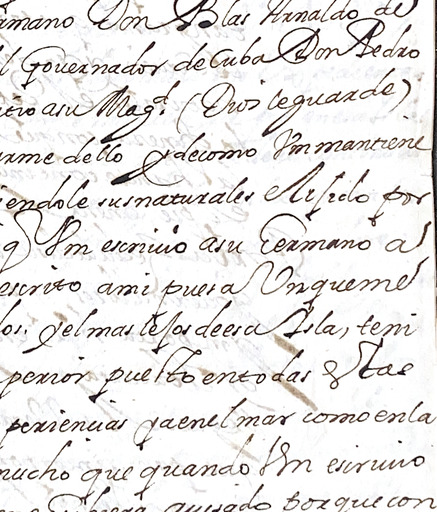 ermano Don Blas Arnaldo de
l Governador de Cuba Don Pedro
a su Mag.d (Dios le guarde)
arme dello y de como Vm mantiene
iendole sus naturales elijido por
q Vm escrivio a su Hermano a
escrito a mi pues a Un que me
los. y el mas lejos de esa Isla, teni
perior puesto en todas estas
periencias ya en el mar como en la
mucho que quando Vm escrivio
avisado porque con